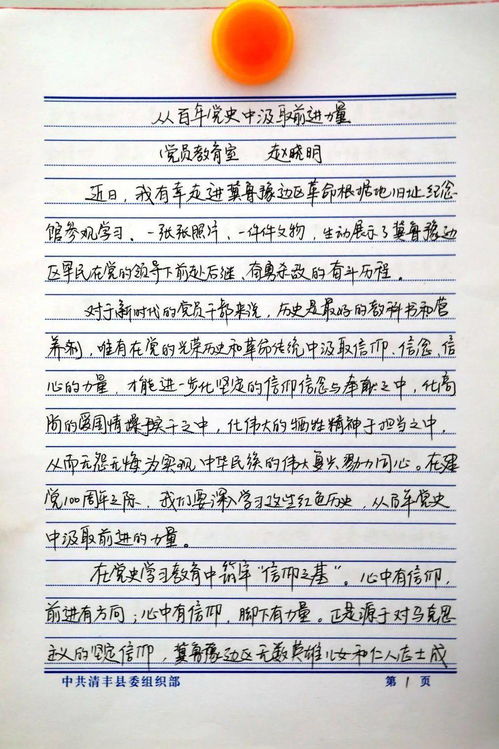 从百年党史中汲取前进力量
党员教育室 赵晓明
近日，我有幸走进冀鲁豫边区革命根据地旧址纪念
馆参观学习。一张张照片、一件件文物，生动展示了冀鲁豫边
区军民在党的领导下前赴后继、奋勇杀敌的奋斗历程。
对于新时代的党员干部来说，历史是最好的教科书和营
养剂，唯有在党的光荣历史和革命传统中汲取信仰、信念、信
心的力量，才能进一步化坚定的信仰信念与奉献之中，化高
尚的爱国情操于实干之中，化伟大的牺牲精神于担当之中，
从而无怨无悔为实现中华民族的伟大复兴勠力同心。在建
党100周年之际，我们要深入学习这些红色历史，从百年党史
中汲取前进的力量。
在党史学习教育中筑牢“信仰之基”。心中有信仰，
前进有方向；心中有信仰，脚下有力量。正是源于对马克思
主义的坚定信仰，冀鲁豫边区无数英雄儿女和仁人志士成
中共清丰县委组织部 第 1 页